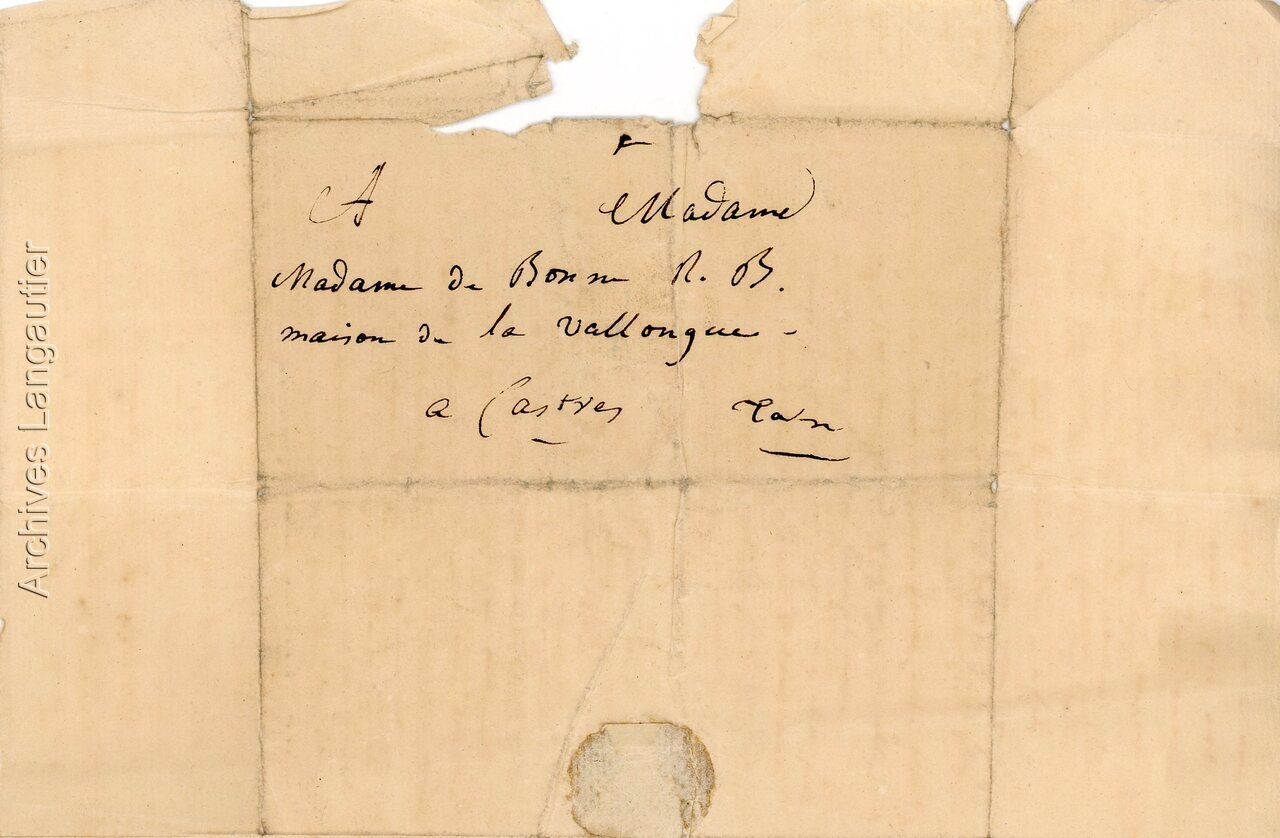 A Madame
Madame de Bonne R. B.
maison de la vallongue -
a Castres Tarn
Archives Langautier